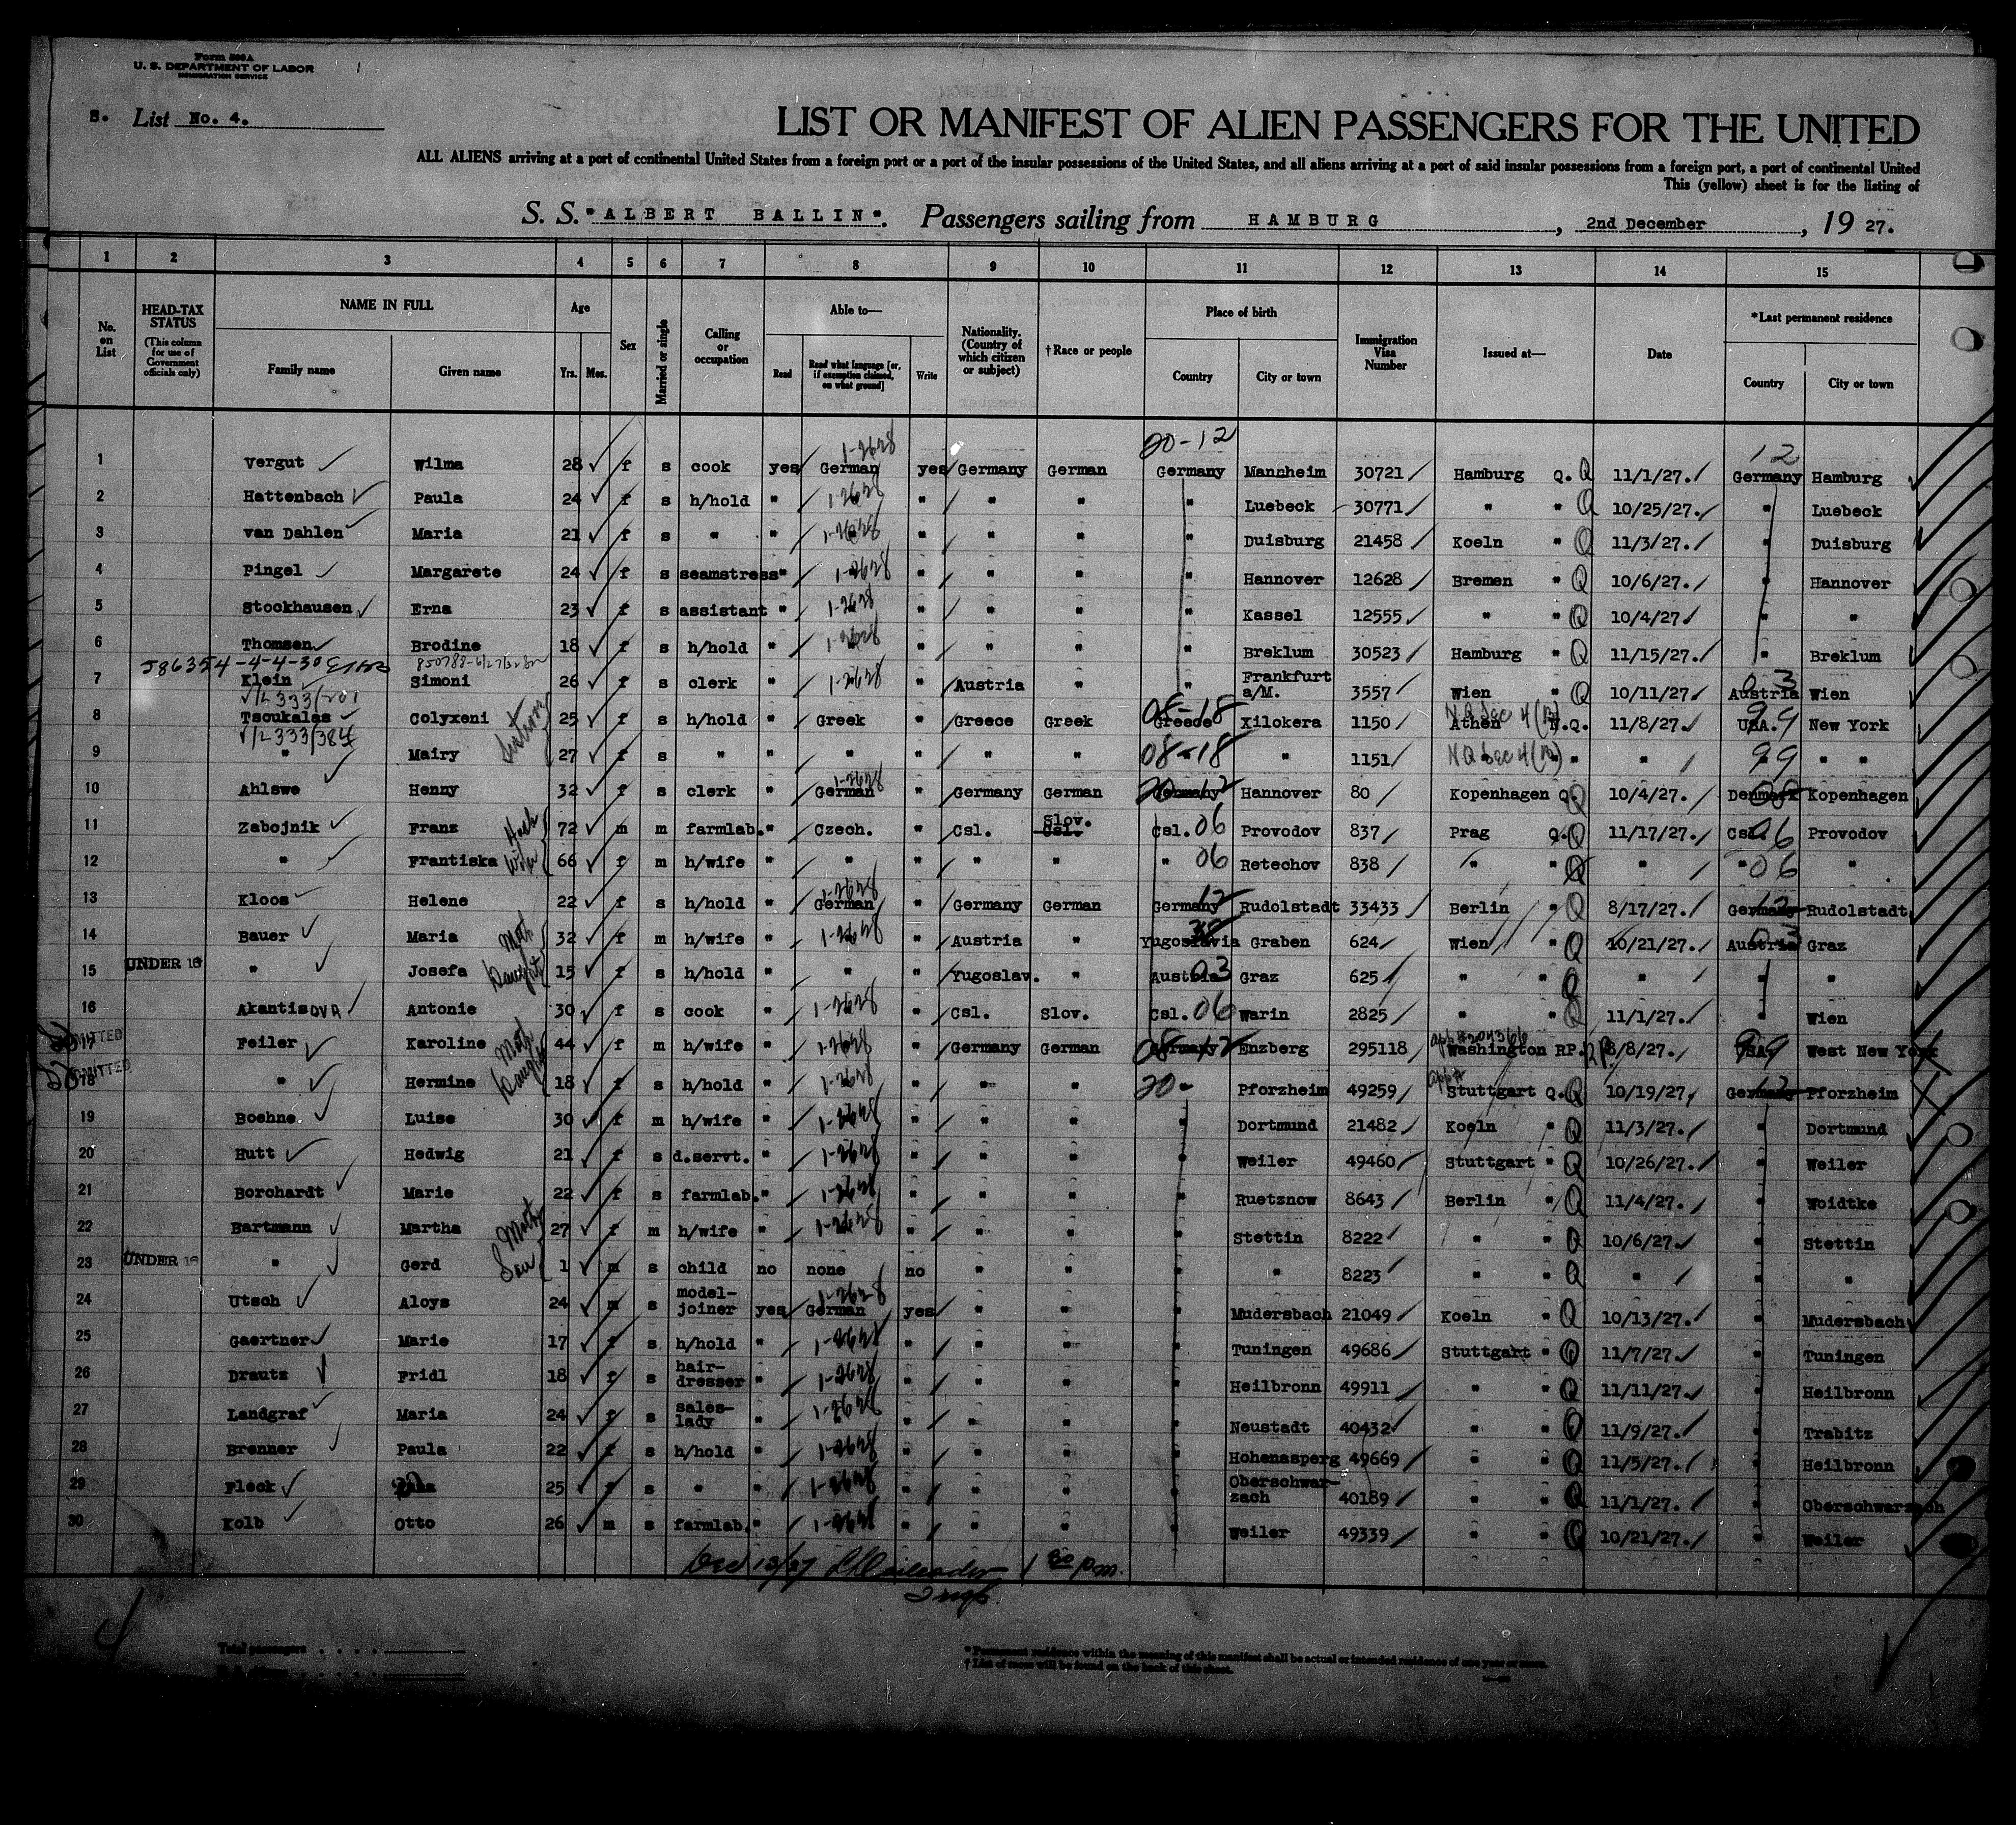 Form 500A
U. S. DEPARTMENT OF LABOR
IMMIGRATION SERVICE
S. List No. 4.
LIST OR MANIFEST OF ALIEN PASSENGERS FOR THE UNITED
ALL ALIENS arriving at a port of continental United States from a foreign port or a port of the insular possessions of the United States, and all aliens arriving at a port of said insular possessions from a foreign port, a port of continental United
This (yellow) sheet is for the listing of
S. S. "ALBERT BALLIN". Passengers sailing from HAMBURG, 2nd December, 19 27.
1 2 3 4 5 6 7 8 9 10 11 12 13 14 15
No. on List HEAD-TAX STATUS (This column for use of Government officials only) NAME IN FULL Family name Given name Age Yrs. Mos. Sex Married or single Calling or occupation Able to— Read Read what language [or, if exemption claimed, on what ground] Write Nationality. (Country of which citizen or subject) †Race or people Place of birth Country City or town Immigration Visa Number Issued at— Date *Last permanent residence Country City or town
20-12 12
1 Vergut Wilma 28 f s cook yes 1-2628 German yes Germany German Germany Mannheim 30721 Hamburg Q. Q 11/1/27. Germany Hamburg
2 Hattenbach Paula 24 f s h/hold " 1-2628 " " " " Luebeck 30771 " " Q 10/25/27. " Luebeck
3 van Dahlen Maria 21 f s " " 1-2628 " " " " Duisburg 21458 Koeln " Q 11/3/27. " Duisburg
4 Pingel Margarete 24 f s seamstress " 1-2628 " " " " Hannover 12628 Bremen " Q 10/6/27. " Hannover
5 Stockhausen Erna 23 f s assistant " 1-2628 " " " " Kassel 12555 " " Q 10/4/27 " "
6 Thomsen Brodine 18 f s h/hold " 1-2628 " " " " Breklum 30523 Hamburg " Q 11/15/27. " Breklum
586354-4-4-30
7 Klein Simoni 26 f s clerk " 1-2628 " Austria " " Frankfurt a/M. 3557 Wien " Q 10/11/27. Austria 03 Wien
V/L 333/201
8 Tsoukalas Colyxeni 25 f s h/hold " Greek " Greece Greek Greece 08-18 Xilokera 1150 Athen N.Q. N Q Sec 4 11/8/27. USA. 99 New York
V/L 333/384
9 " Mairy 27 f s " " " " " " 08-18 " 1151 N Q Sec 4 " " 99 " "
10 Ahlswe Henny 32 f s clerk " 1-2628 German " Germany German Germany 20-12 Hannover 80 Kopenhagen Q. Q 10/4/27. Denmark Kopenhagen
11 Zabojnik Franz 72 m m farmlab. " Czech. " Csl. Slov. Csl. Csl. 06 Provodov 837 Prag Q. Q 11/17/27. Csl. 06 Provodov
12 " Frantiska Wife 66 f m h/wife " " " " " " 06 Retechov 838 " " Q " " 06 "
13 Kloos Helene 22 f s h/hold " 1-2628 German " Germany German Germany 12 Rudolstadt 33433 Berlin " Q 8/17/27. Germany 12 Rudolstadt
14 Bauer Maria Moth 32 f m h/wife " 1-2628 " Austria " Yugoslavia Graben 624 Wien " Q 10/21/27. Austria 03 Graz
15 UNDER 16 " Josefa Daught 15 f s h/hold " " " Yugoslav. " Austria 03 Graz 625 " " Q " " "
16 Akantisova Antonie 30 f s cook " 1-2628 " Csl. Slov. Csl. 06 Warin 2825 " " Q 11/1/27. " Wien
17 ADMITTED Feiler Karoline Moth 44 f m h/wife " 1-2628 " Germany German Germany Enzberg 295118 Washington RP. 8/8/27. USA. 99 West New York
18 ADMITTED " Hermine Daught 18 f s h/hold " 1-2628 " " " 20- Pforzheim 49259 Stuttgart Q. Q 10/19/27. Germany 12 Pforzheim
19 Boehne Luise 30 f m h/wife " 1-2628 " " " " Dortmund 21482 Koeln " Q 11/3/27. " Dortmund
20 Hutt Hedwig 21 f s d.servt. " 1-2628 " " " " Weiler 49460 Stuttgart " Q 10/26/27. " Weiler
21 Borchardt Marie 22 f s farmlab. " 1-2628 " " " " Ruetznow 8643 Berlin " Q 11/4/27. " Woidtke
22 Bartmann Martha Moth 27 f m h/wife " 1-2628 " " " " Stettin 8222 " " Q 10/6/27. " Stettin
23 UNDER 16 " Gerd Son 1 m s child no none no " " " " 8223 " " Q " " "
24 Utsch Aloys 24 m s model-joiner yes 1-2628 German yes " " " Mudersbach 21049 Koeln " Q 10/13/27. " Mudersbach
25 Gaertner Marie 17 f s h/hold " 1-2628 " " " " Tuningen 49686 Stuttgart " Q 11/7/27. " Tuningen
26 Drautz Fridl 18 f s hair-dresser " 1-2628 " " " " Heilbronn 49911 " " Q 11/11/27. " Heilbronn
27 Landgraf Maria 24 f s sales-lady " 1-2628 " " " " Neustadt 40432 " " Q 11/9/27. " Trabitz
28 Brenner Paula 22 f s h/hold " 1-2628 " " " " Hohenasperg 49669 " " Q 11/5/27. " Heilbronn
29 Fleck 25 f s " " 1-2628 " " " " Oberschwar-zach 40189 " " Q 11/1/27. " Oberschwarzach
30 Kolb Otto 26 m s farmlab. " 1-2628 " " " " Weiler 49339 " " Q 10/21/27. " Weiler
Dec 12/27 1 30 p.m.
Insp.
Total passengers
* Permanent residence within the meaning of this manifest shall be actual or intended residence of one year or more.
† List of races will be found on the back of this sheet.